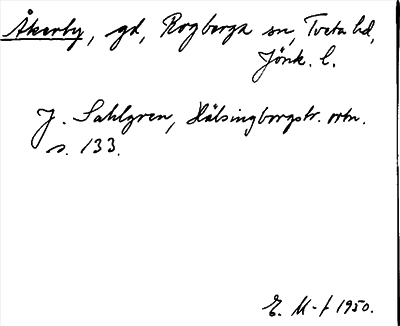 Åkerby, gd, Rogberga sn, Tveta hd,
Jönk. l.
J. Sahlgren, Hälsingborgstr. ortn.
s. 133.
E. M-t 1950.